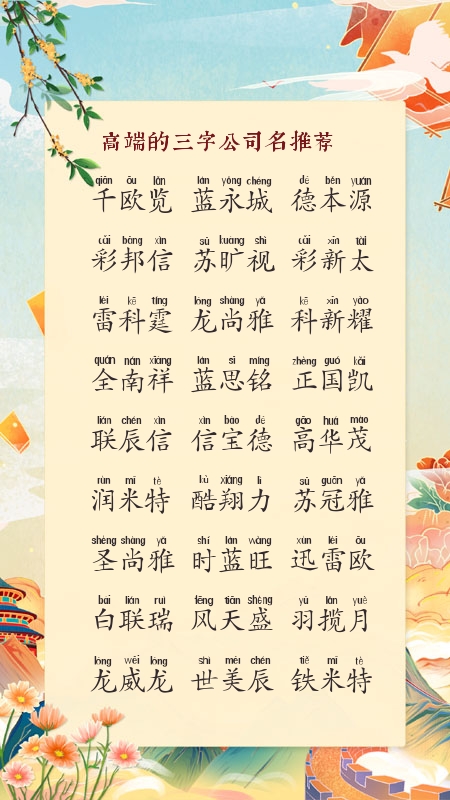 高端的三字公司名推荐
qiān ōu lǎn lán yǒng chéng dé běn yuán
千欧览 蓝永城 德本源
cǎi bāng xìn sū kuàng shì cǎi xīn tài
彩邦信 苏旷视 彩新太
léi kē tíng lóng shàng yǎ kē xīn yào
雷科霆 龙尚雅 科新耀
quán nán xiáng lán sī míng zhèng guó kǎi
全南祥 蓝思铭 正国凯
lián chén xìn xìn bǎo dé gāo huá mào
联辰信 信宝德 高华茂
rùn mǐ tè kù xiáng lì sū guān yǎ
润米特 酷翔力 苏冠雅
shèng shàng yǎ shí lán wàng xùn léi ōu
圣尚雅 时蓝旺 迅雷欧
bái lián ruì fēng tiān shèng yǔ lǎn yuè
白联瑞 风天盛 羽揽月
lóng wēi lóng shì měi chén tiě mǐ tè
龙威龙 世美辰 铁米特